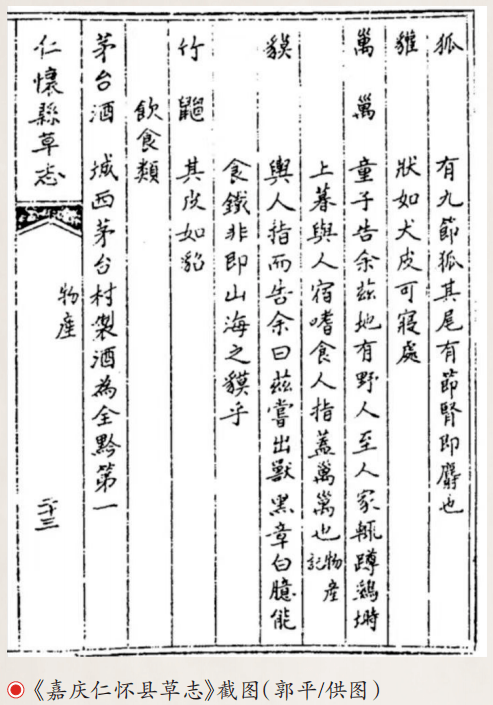 狐 有九節狐其尾有節腎即麝也
貛 狀如犬皮可寢處
萬萬 童子告余茲地有野人至人家輒蹲鷄塒
上暮與人宿嗜食人指蓋萬萬也物產記
貘 輿人指而告余曰茲嘗出獸黑章白臆能
食鐵非即山海之貘乎
竹䶉 其皮如貂
飲食類
茅台酒 城西茅台村製酒為全黔第一
仁懷縣草志
物產
二十三
《嘉庆仁怀县草志》截图(郭平/供图)